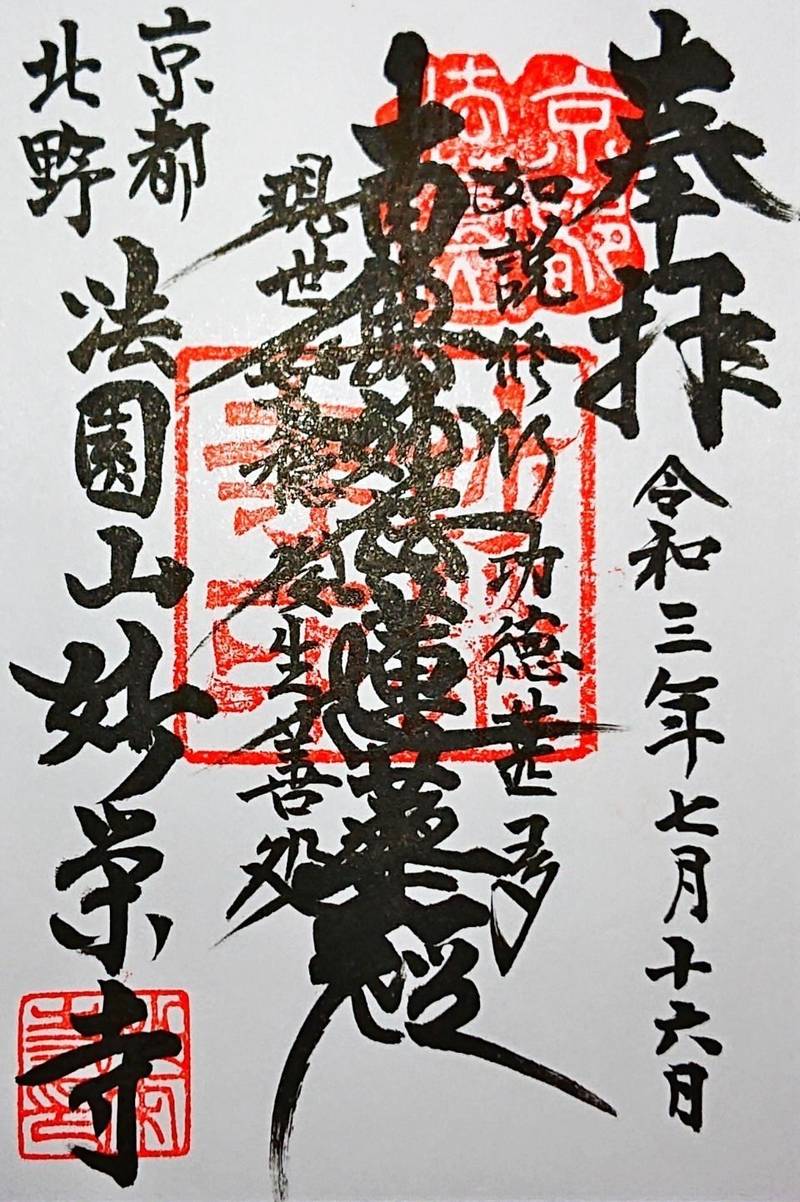 奉拝
令和三年七月十六日
如説修行功徳甚多
南無妙法蓮華経
現世安穏後生善処
京都
北野
法園山妙栄寺